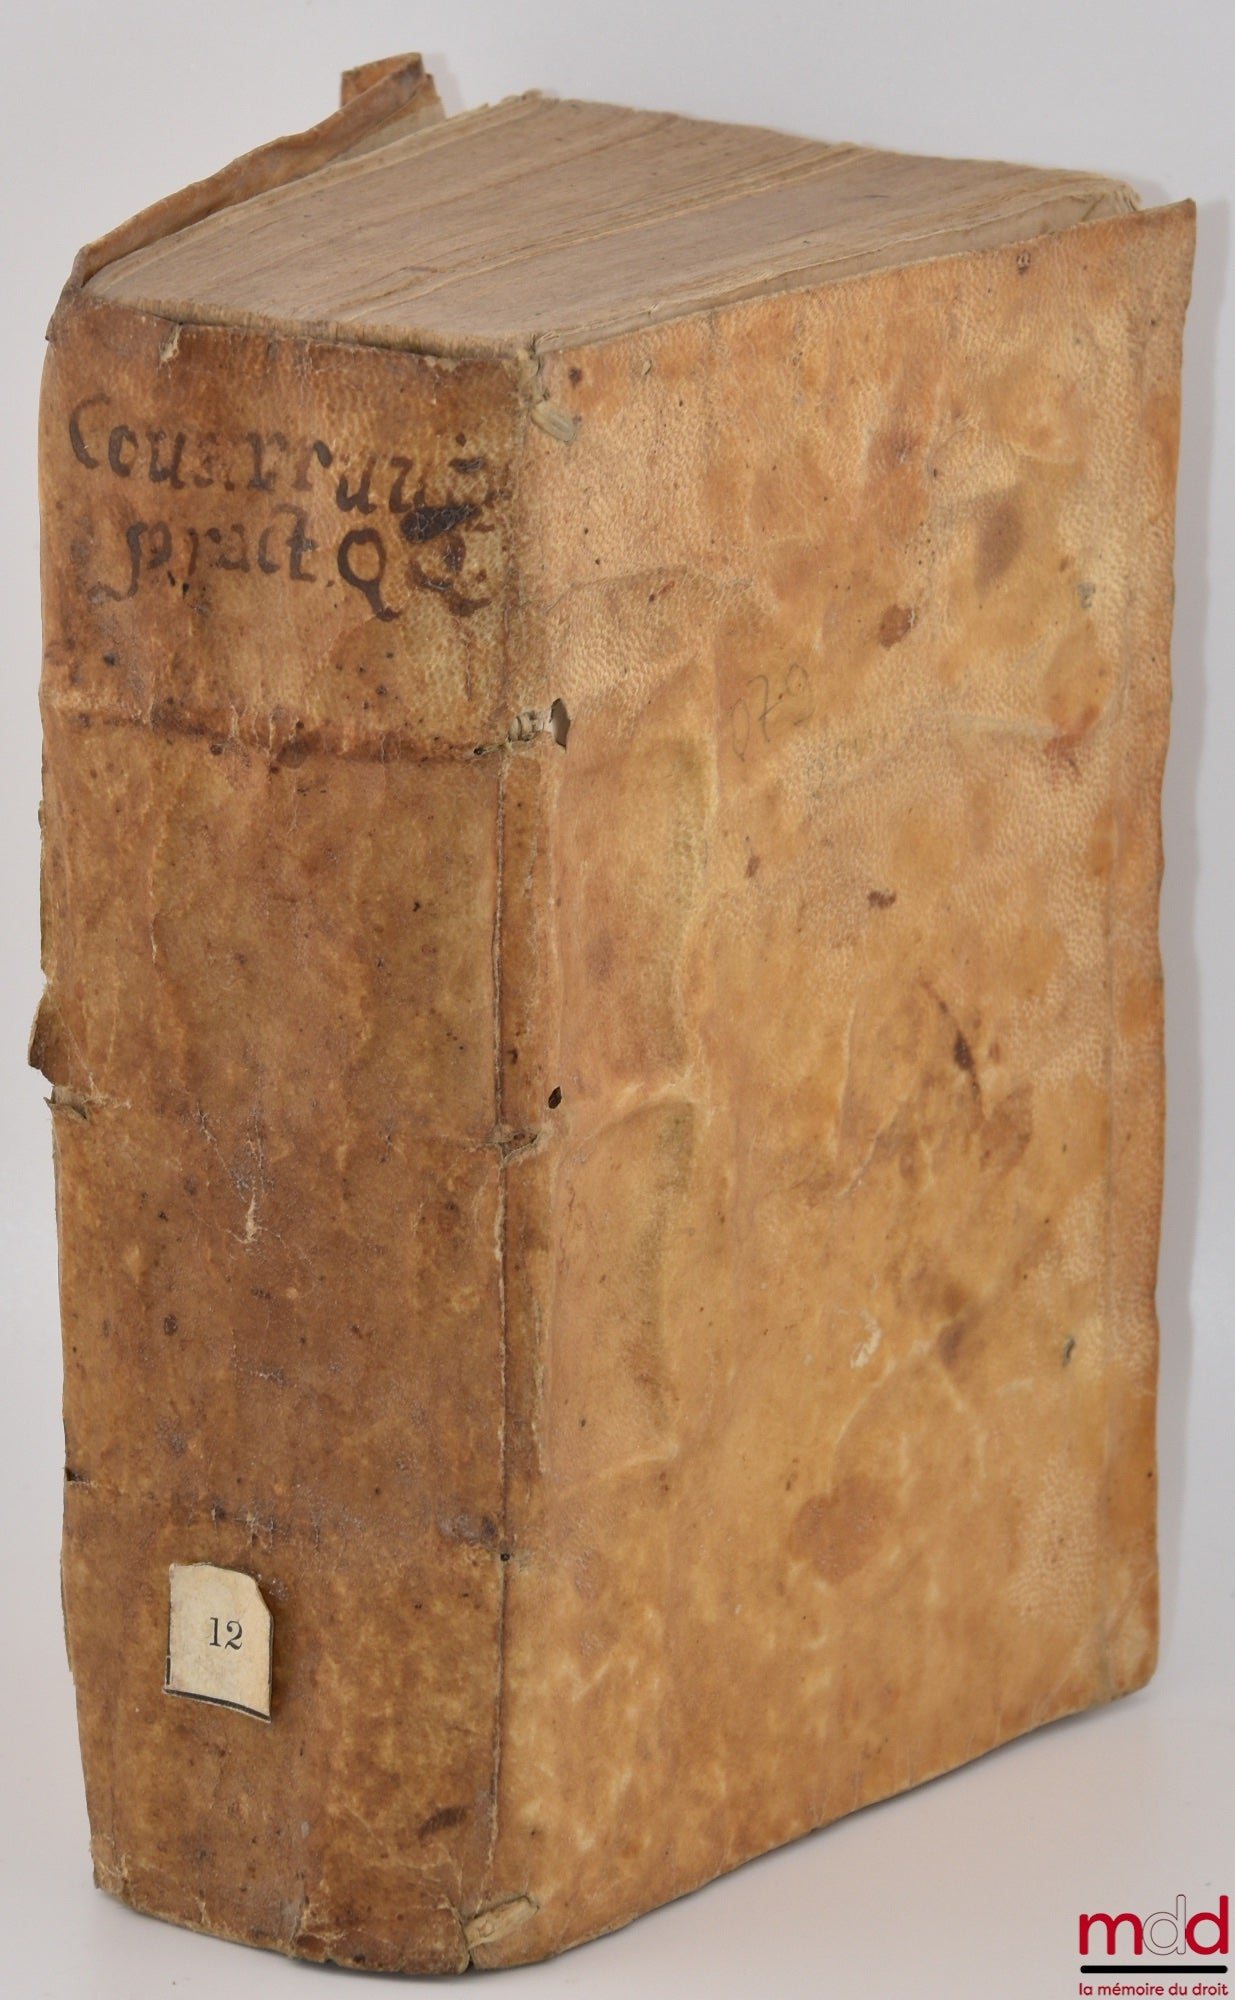 Couarruuia
pract. QQ.
079
12
mdd
la mémoire du droit